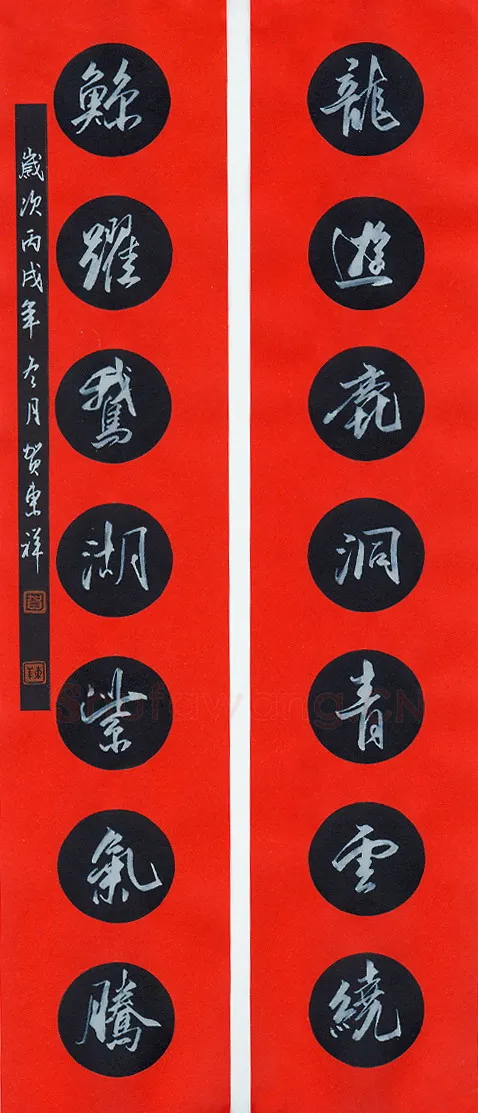 龍遊鹿洞青雲繞
鯨躍鵝湖紫氣騰
歲次丙戌年冬月賀祥
Shufawang.CN